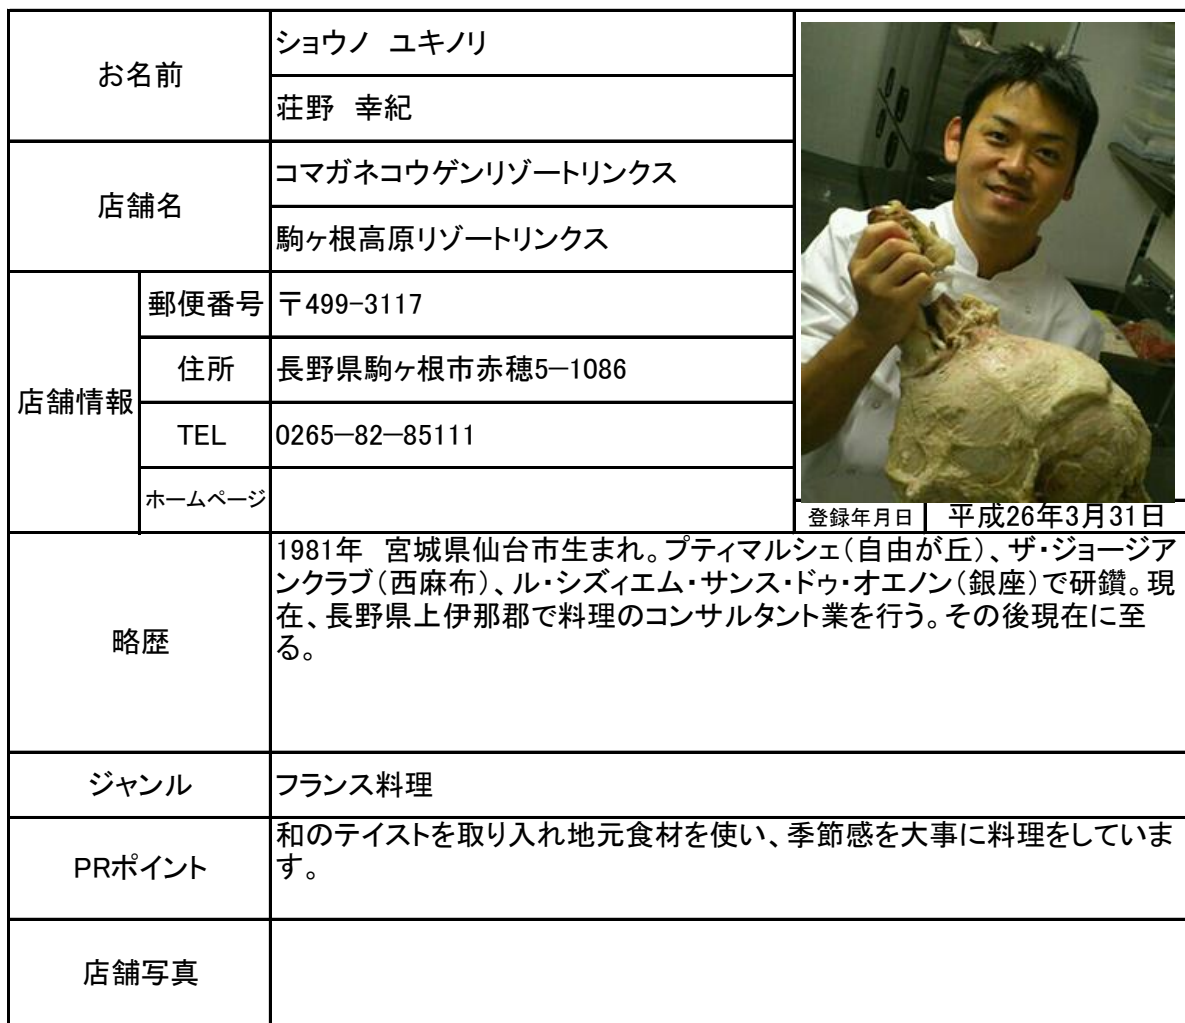 お名前
ショウノ　ユキノリ
荘野　幸紀
店舗名
コマガネコウゲンリゾートリンクス
駒ヶ根高原リゾートリンクス
店舗情報
郵便番号
〒499-3117
住所
長野県駒ヶ根市赤穂5−1086
TEL
0265−82−85111
ホームページ
登録年月日
平成26年3月31日
略歴
1981年　宮城県仙台市生まれ。プティマルシェ（自由が丘）、ザ・ジョージア
ンクラブ（西麻布）、ル・シズィエム・サンス・ドゥ・オエノン（銀座）で研鑽。現
在、長野県上伊那郡で料理のコンサルタント業を行う。その後現在に至
る。
ジャンル
フランス料理
PRポイント
和のテイストを取り入れ地元食材を使い、季節感を大事に料理をしていま
す。
店舗写真